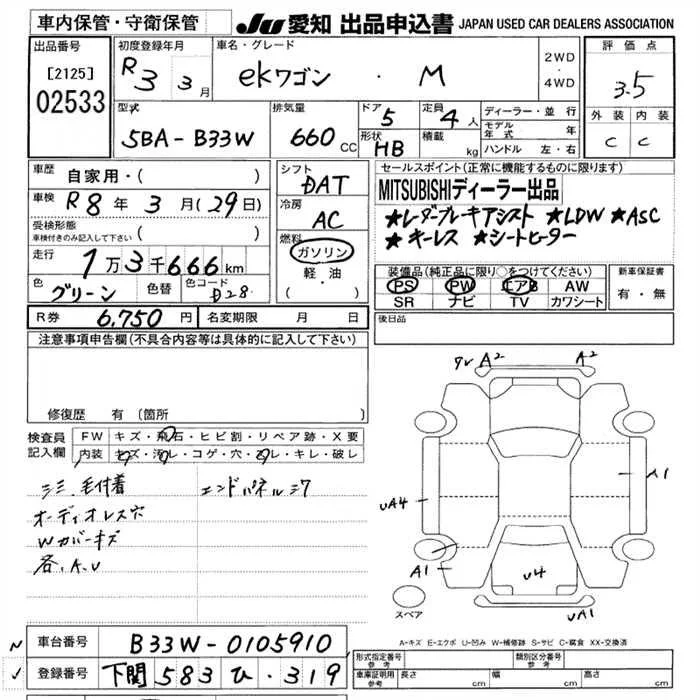 車内保管・守衛保管
JU 愛知 出品申込書 JAPAN USED CAR DEALERS ASSOCIATION
出品番号
[2125]
02533
初度登録年月
R3 3月
車名・グレード
ekワゴン ・ M
2WD
・
4WD
評価点
3.5
外装 内装
C C
型式
5BA-B33W
排気量
660 CC
ドア
5
定員
4人
形状
HB
積載
kg
ディーラー・並行
モデル年式 年
ハンドル 左・右
車歴
自家用・( )
車検
R8年3月(29日)
受検形態
車検付きのみ記入して下さい ( )
走行
1万3千666km
色
グリーン
色替
色コード
D28
シフト
DAT
冷房
AC
燃料
ガソリン
・
軽・油
・
( )
セールスポイント(正常に機能するものに限ります)
MITSUBISHIディーラー出品
★レーダーブレーキアシスト ★LDW ★ASC
★キーレス ★シートヒーター
装備品(純正品に限り○をつけてください)
PS PW エアB AW
SR ナビ TV カワシート
新車保証書
有・無
R券 6,750円
名変期限 月 日
後日品
注意事項申告欄(不具合内容等は具体的に記入して下さい)
修復歴 有 (箇所 )
検査員
記入欄
FW キズ・飛石・ヒビ割・リペア跡・X要
内装 キズ・汚レ・コゲ・穴・スレ・キレ・破レ
シミ、毛付着
オーディオレス穴
Wカバーキズ
各、A、U
エンドパネルミク
ワレ A2
A2
UA4
A1
A1
U4
UA1
スペア
A-キズ E-エクボ U-凹み W-補修跡 S-サビ C-腐食 XX-交換済
車台番号
B33W-0105910
登録番号
下関 583 ひ・319
形式指定番号
参考
類別区分番号
参考
車庫証明用
参考
長さ cm
幅 cm
高さ cm